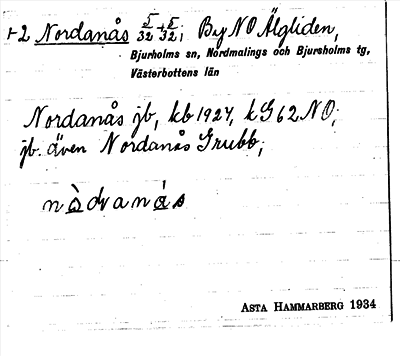 1-2 Nordanås 5/32 + 5/32; By NO Älgliden,
Bjurholms sn, Nordmalings och Bjursholms tg,
Västerbottens län
Nordanås jb, kb 1924, k G 62 NO;
jb. även Nordanås Grubb;
nòdvanás
Asta Hammarberg 1934